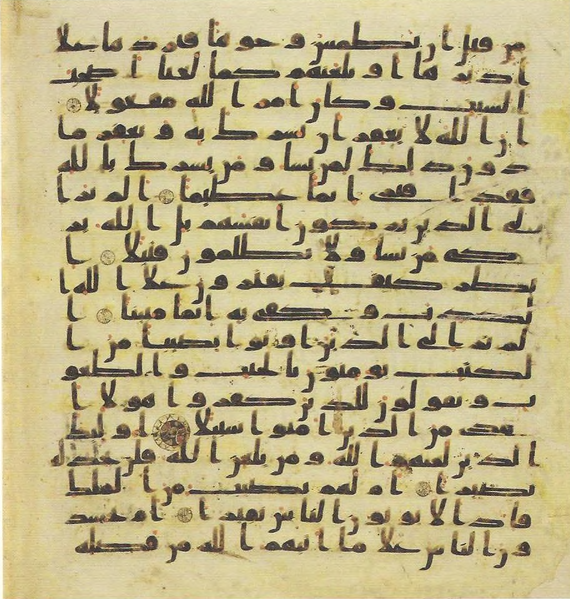 من قبل ان نطمس وجوها فنردها على
ادبرها او نلعنهم كما لعنا اصحب
السبت وكان امر الله مفعولا
ان الله لا يغفر ان يشرك به ويغفر ما
دون ذلك لمن يشا ومن يشرك بالله
فقد افترى اثما عظيما الم تر ا
لى الذين يزكون انفسهم بل الله يز
كى من يشا ولا يظلمون فتيلا ا
نظر كيف يفترون على الله ا
لكذب وكفى به اثما مبينا ا
لم تر الى الذين اوتوا نصيبا من ا
لكتب يومنون بالجبت والطغو
ت ويقولون للذين كفروا هولا ا
هدى من الذين امنوا سبيلا اولئك
الذين لعنهم الله ومن يلعن الله فلن تجد له
نصيرا ام لهم نصيب من الملك
فاذا لا يوتون الناس نقيرا ام يحسد
ون الناس على ما اتيهم الله من فضله